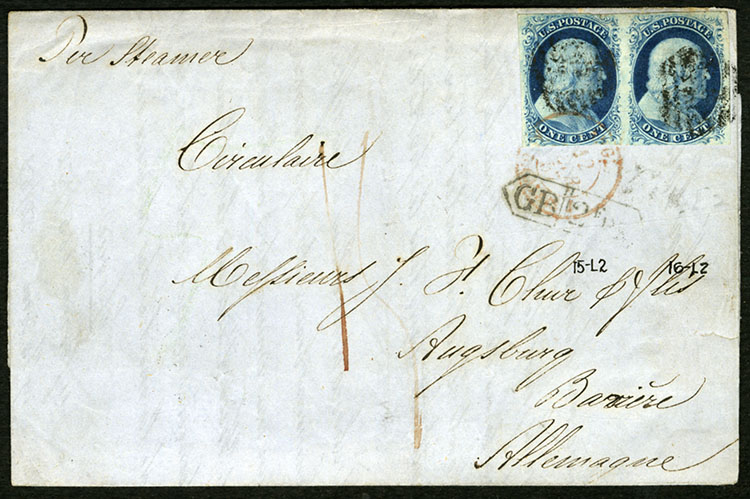 Per Steamer
U.S. POSTAGE U.S. POSTAGE
ONE CENT ONE CENT
Circulaire
GB
15-L2 16-L2
Messieurs J. H. Chur & fils
Augsburg
Bavière
Allemagne